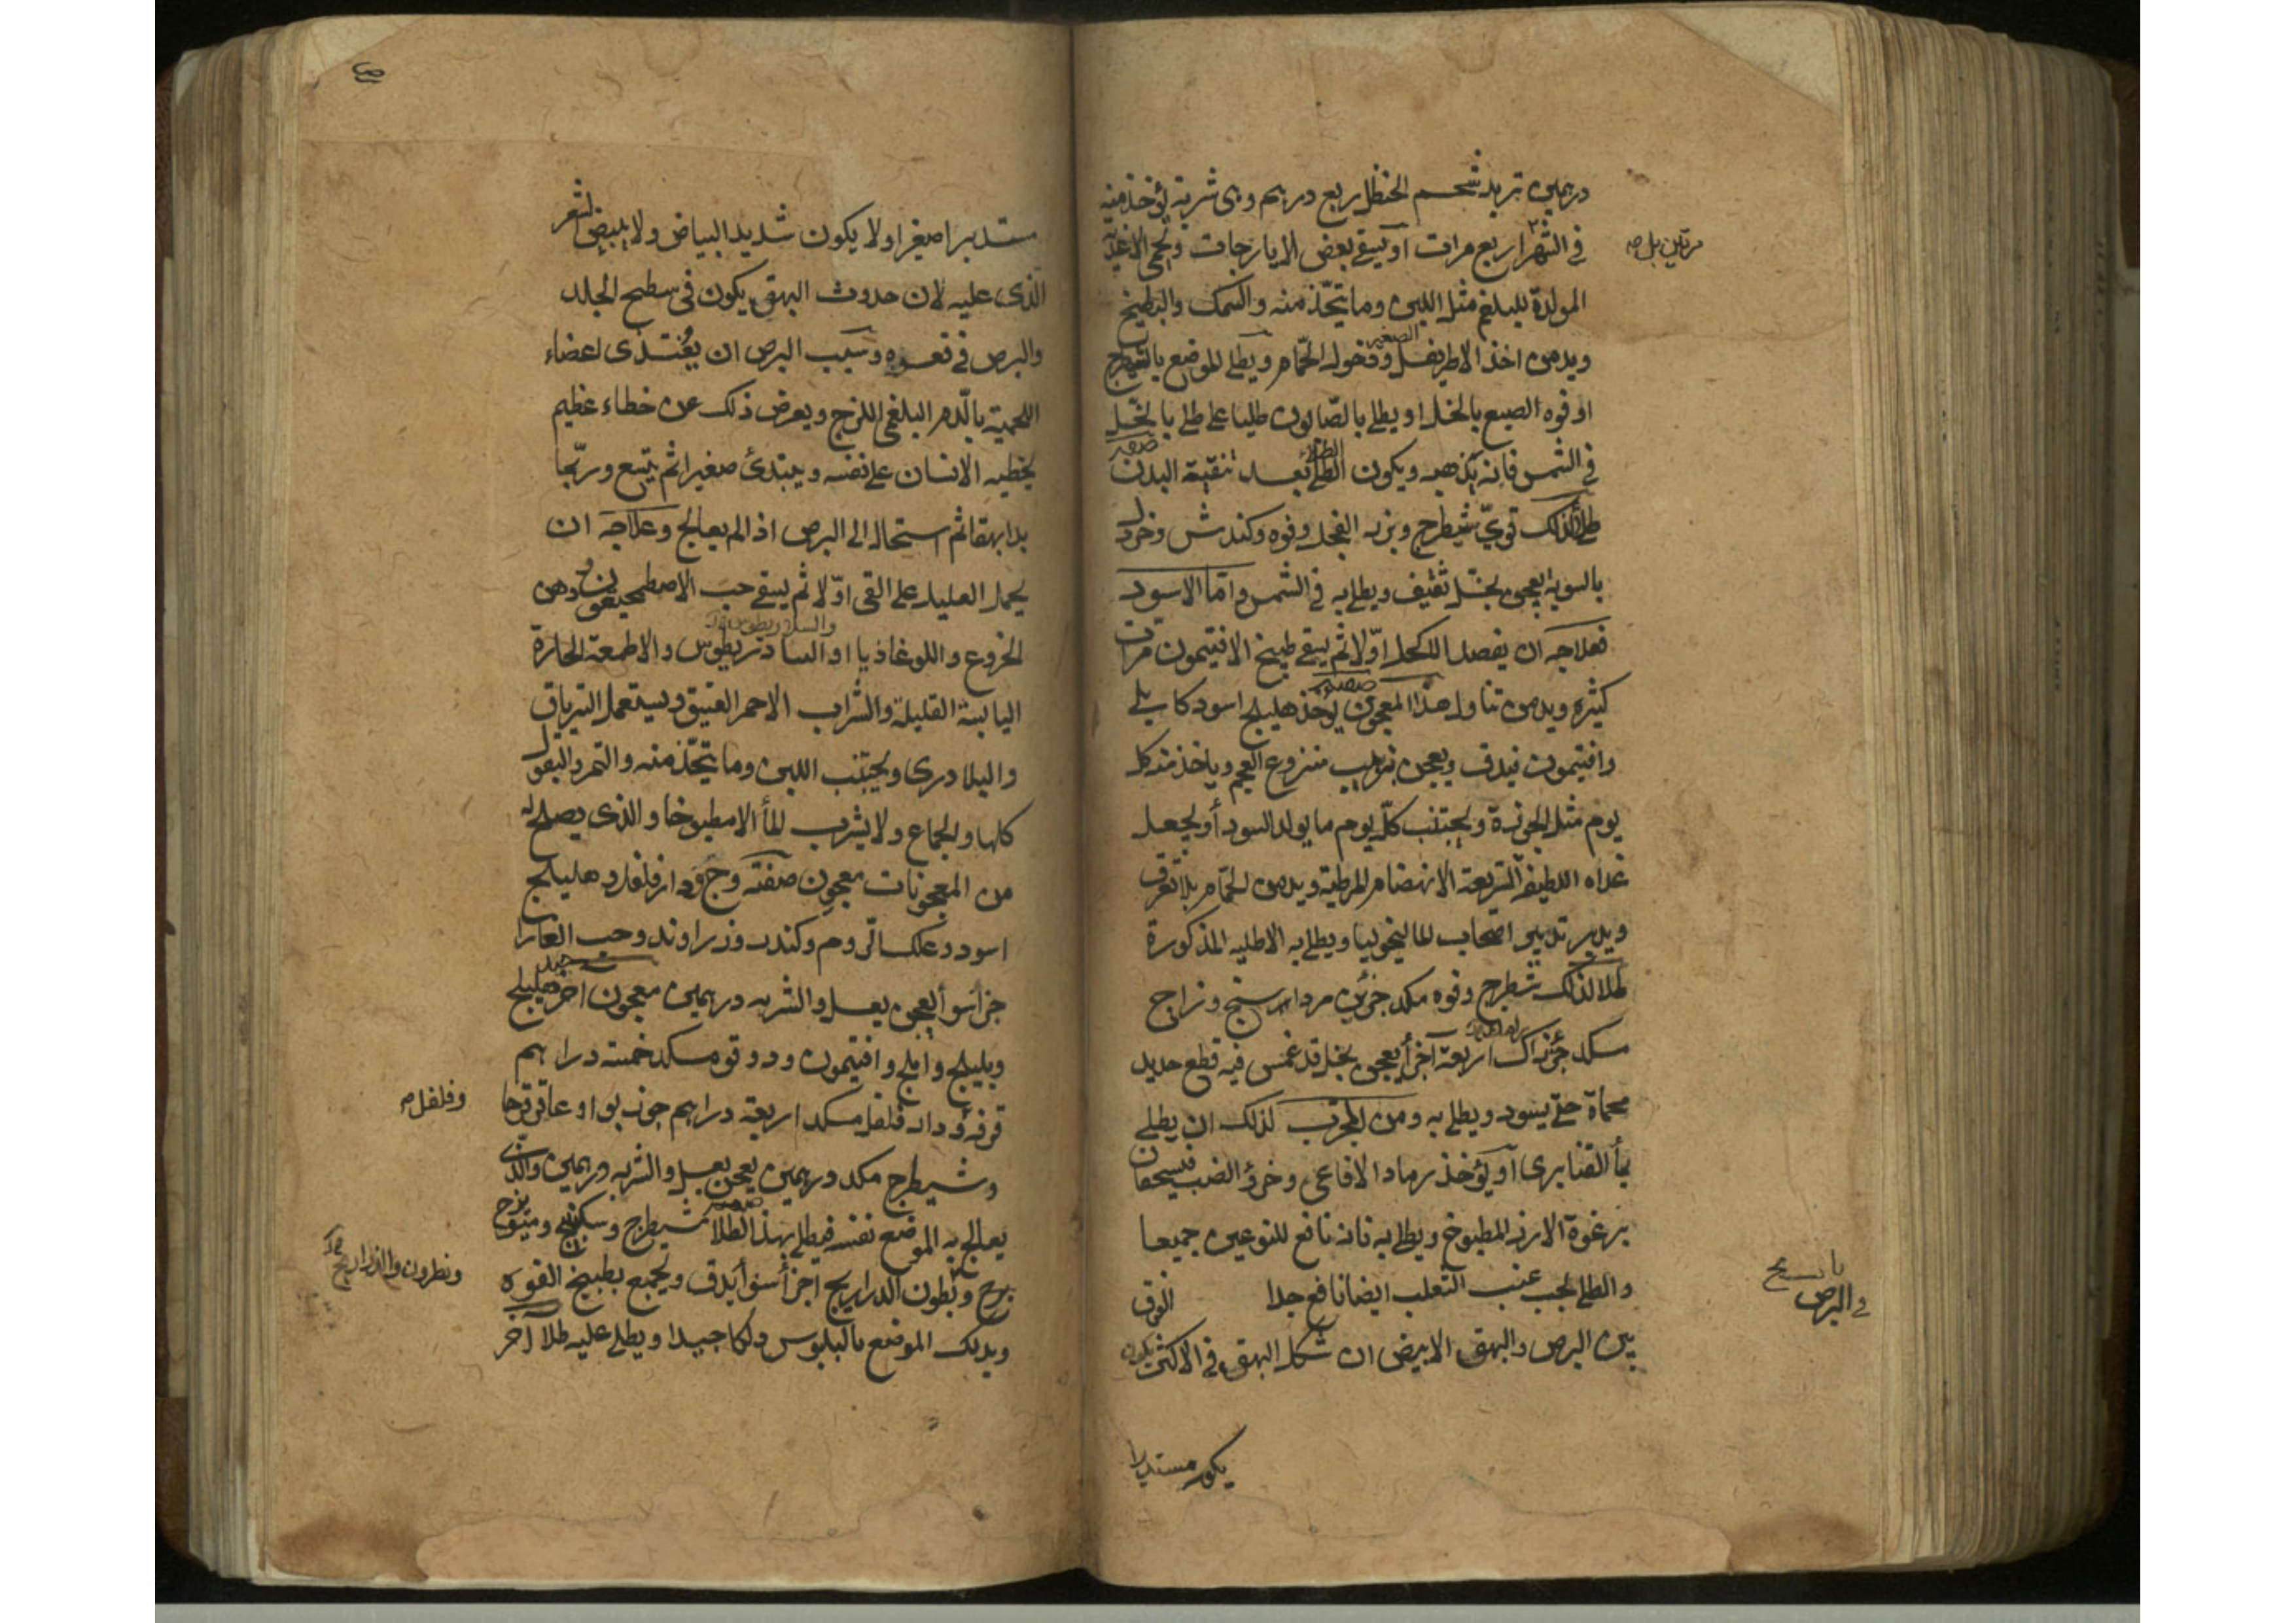 درهمين تربد شحم الحنظل ربع درهم وهى شربة يؤخذ منه
فى الشهر اربع مرات او يسقى بعض الايارجات ويحمى الاغذية
مرتين بل صه
المولدة للبلغم مثل اللبن وما يتخذ منه والسمك والبطيخ
ويدمن اخذ الاطريفل الصغير ودخوله الحمام ويطلى الموضع بالشيطرج
او فوه الصبع بالخل او يطلى بالصابون طليا على طلى بالخل
فى الشمس فانه يذهبه ويكون الطلى الطلا بعد تنقية البدن صفه
طلأ لذلك قوىّ شيطرج وبزر الفجل وفوه وكندش وخردل
بالسوية يعجن بخل ثقيف ويطلى به فى الشمس وامّا الاسود
فعلاجه ان يفصد الاكحل اوّلا ثم يسقى طبيخ الافتيمون مرات
كثيره ويدمن تناول هذا المعجون صفته يؤخذ هليلج اسود كابلى
وافتيمون فيدق ويعجن بزبيب منزوع العجم وياخذ منه كل
يوم مثل الجوزة ويجتنب كلّ يوم ما يولد السودأ ويجعل
غداه اللطيفه السريعة الانهضام المرطبة ويدمن الحمام بلا تعرق
ويدبر تدبير اصحاب المالنخوليا ويطلى به الاطليه المذكورة
طلا لذلك شطرج وفوه مكد جزئين مرداسنج وزاج
مسكد جزء اربعة آخر أ يعجن بخل قد غمس فيه قطع حديد
محماة حتى يسود ويطلى به ومن المجرب لذلك ان يطلى
بمأ القنابرى او يؤخذ رماد الافاعى وخرؤ الضب فيسحقان
برغوة الارز المطبوخ ويطلى به فانه نافع للنوعين جميعا
والطلى بحب عنب الثعلب ايضا نافع جدا الفرق
فى البرص
بين البرص والبهق الابيض ان شكل البهق فى الاكثر يكون
يكون مستديرا
مستديرا صغيرا ولا يكون شديد البياض ولا يبيض الشعر
الذى عليه لان حدوث البهق يكون فى سطح الجلد
والبرص فى قعره وسبب البرص ان يغتذى اعضاء
اللحمية بالدم البلغمى اللزج ويعرض ذلك عن خطاء عظيم
يخطيه الانسان على نفسه ويبتدئ صغيرا ثم يتسع وربّما
بدا بهقا ثم استحال الى البرص اذا لم يعالج وعلاجه ان
يحمل العليل على القى اوّلا ثم يسقى حب الاصطمحيقون ودهن
الخروع واللوغاذيا او السادريطوس والاطعمة الحارة
اليابسة القليلة والشراب الاحمر العتيق ويستعمل الترياق
والبلادرى ويجتنب اللبن وما يتخذ منه والتمر والبقول
كلها والجماع ولا يشرب المأ الا مطبوخا والذى يصلح له
من المعجونات معجون صفته وج ودارفلفل وهليلج
اسود وعلك الروم وكندر وزراوند وحب الغار
جزأ سوأ يعجن بعسل والشربه درهمين معجون اخر جيد هليلج
وبليلج واملج وافتيمون ودوقو مسكد خمسة دراهم
قرفه ودار فلفل مسكد اربعة دراهم جوز بوا وعاقرقرحا
وفلفل صه
وشيطرج مكد درهمين يعجن بعسل والشربه درهمين والذى
يعالج به الموضع نفسه فيطلى بهذا الطلا صفته شيطرج وسكبينج وميوبزج
ونطرون والذراريح
وبطون الذراريح اجزأ سوأ يدق ويجمع بطبيخ الفوه
ويدلك الموضع بالبلبوس دلكا جيدا ويطلى عليه طلا اخر